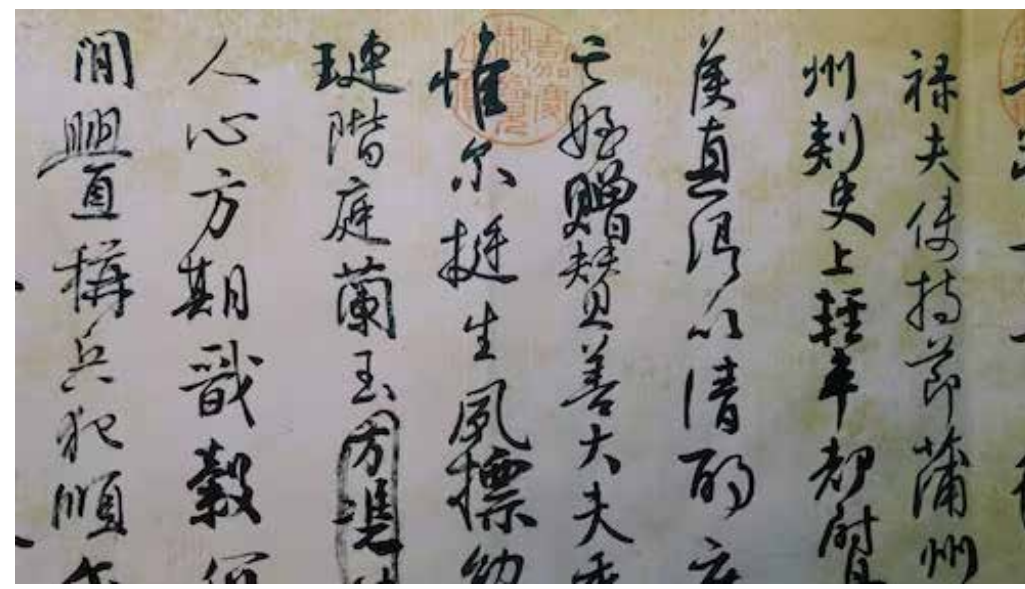 禄夫使持節蒲州
州刺史上輕車都尉
侯真卿以清酌庶
亡姪贈贊善大夫季
惟尔挺生夙標幼
璉階庭蘭玉方憑
人心方期戩穀何
閒舋稱兵犯順